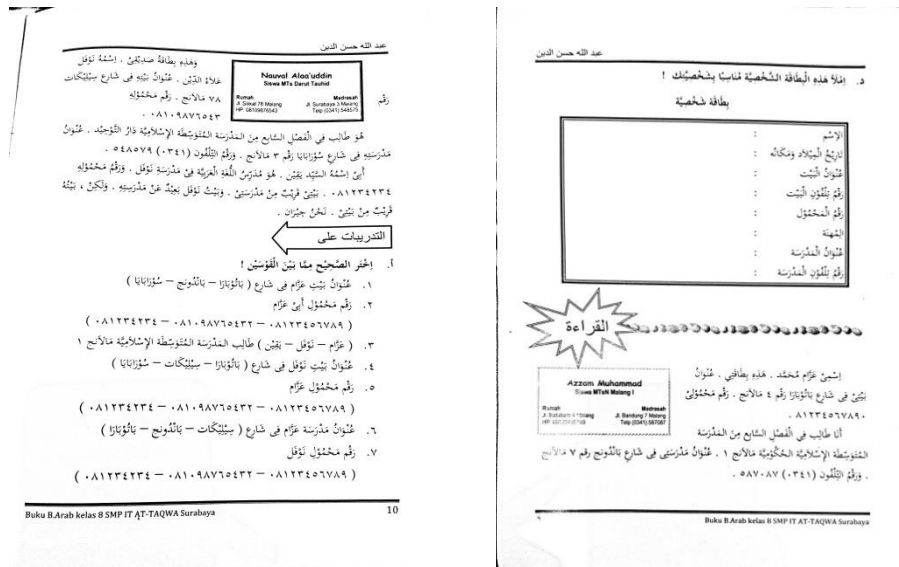 عبد الله حسن الدين
وَهَذِهِ بِطَاقَةُ صَدِيْقِيْ . اِسْمُهُ نَوْفَل
Nauval Alaa'uddin
Siswa MTs Darut Tauhid
Rumah
Jl. Silikat 78 Malang
HP. 08109876543
Madrasah
Jl. Surabaya 3 Malang
Telp (0341) 548579
عَلاَءُ الدِّيْن . عُنْوَانُ بَيْتِهِ فِى شَارِع سِيْلِيْكَات
رَقْم ٧٨ مَالاَنج . رَقْم مَحْمُوْلِهِ
٠٨١٠٩٨٧٦٥٤٣ .
هُوَ طَالِب فِي الْفَصْلِ السَّابِع مِنَ المَدْرَسَة المُتَوَسِّطَة الإِسْلاَمِيَّة دَارُ التَّوْحِيْد . عُنْوَانُ
مَدْرَسَتِهِ فِى شَارِع سُوْرَابَايَا رَقْم ٣ مَالاَنج . وَرَقْمُ التِّلْفُون (٠٣٤١) ٥٤٨٥٧٩ .
أَبِيْ اِسْمُهُ السَّيِّد يَقِيْن . هُوَ مُدَرِّسُ اللُّغَةِ الْعَرَبِيَّة فِيْ مَدْرَسَةِ نَوْفَل . وَرَقْمُ مَحْمُوْلِهِ
٠٨١٢٣٤٢٣٤ . بَيْتِيْ قَرِيْبٌ مِنْ مَدْرَسَتِيْ . وَبَيْتُ نَوْفَل بَعِيْدٌ عَنْ مَدْرَسَتِهِ . وَلَكِنْ ، بَيْتُهُ
قَرِيْبٌ مِنْ بَيْتِيْ . نَحْنُ جِيْرَان .
التدريبات على
أ. اِخْتَر الصَّحِيْح مِمَّا بَيْنَ الْقَوْسَيْن !
١. عُنْوَانُ بَيْتِ عَزَّام فِى شَارِع ( بَاتُوْبَارَا – بَانْدُونج – سُوْرَابَايَا )
٢. رَقْم مَحْمُوْلِ أَبِيْ عَزَّام
( ٠٨١٢٣٤٥٦٧٨٩ – ٠٨١٠٩٨٧٦٥٤٣٢ – ٠٨١٢٣٤٢٣٤ )
٣. ( عَزَّام – نَوْفَل – يَقِيْن ) طَالِب المَدْرَسَة المُتَوَسِّطَة الإِسْلاَمِيَّة مَالاَنج ١
٤. عُنْوَانُ بَيْتِ نَوْفَل فِى شَارِع ( بَاتُوْبَارَا – سِيْلِيْكَات – سُوْرَابَايَا )
٥. رَقْم مَحْمُوْلِ عَزَّام
( ٠٨١٢٣٤٥٦٧٨٩ – ٠٨١٠٩٨٧٦٥٤٣٢ – ٠٨١٢٣٤٢٣٤ )
٦. عُنْوَانُ مَدْرَسَة عَزَّام فِى شَارِع ( سِيْلِيْكَات – بَانْدُونج – بَاتُوْبَارَا )
٧. رَقْم مَحْمُوْلِ نَوْفَل
( ٠٨١٢٣٤٥٦٧٨٩ – ٠٨١٠٩٨٧٦٥٤٣٢ – ٠٨١٢٣٤٢٣٤ )
Buku B.Arab kelas 8 SMP IT AT-TAQWA Surabaya
10
عبد الله حسن الدين
د. اِمْلأْ هَذِهِ الْبِطَاقَةَ الشَّخْصِيَّة مُنَاسِبًا بِشَخْصِيَّتِك !
بِطَاقَة شَخْصِيَّة
الإِسْم :
تَارِيْخُ الْمِيْلاَد وَمَكَانُه :
عُنْوَانُ الْبَيْت :
رَقْمُ تِلْفُوْن الْبَيْت :
رَقْمُ الْمَحْمُوْل :
المِهْنَة :
عُنْوَانُ الْمَدْرَسَة :
رَقْمُ تِلْفُوْن الْمَدْرَسَة :
القراءة
اِسْمِيْ عَزَّام مُحَمَّد . هَذِهِ بِطَاقَتِي . عُنْوَانُ
Azzam Muhammad
Siswa MTsN Malang I
Rumah
Madrasah
Jl. Bandung 7 Malang
Telp (0341) 587087
بَيْتِيْ فِى شَارِع بَاتُوْبَارَا رَقْم ٤ مَالاَنج . رَقْم مَحْمُوْلِيْ
٠٨١٢٣٤٥٦٧٨٩ .
أَنَا طَالِب فِي الْفَصْلِ السَّابِع مِنَ المَدْرَسَة
المُتَوَسِّطَة الإِسْلاَمِيَّة الحُكُوْمِيَّة مَالاَنج ١ . عُنْوَانُ مَدْرَسَتِى فِى شَارِع بَانْدُونج رقم ٧ مَالاَنج
. وَرَقْمُ التِّلْفُون (٠٣٤١) ٥٨٧٠٨٧ .
٩
Buku B.Arab kelas 8 SMP IT AT-TAQWA Surabaya